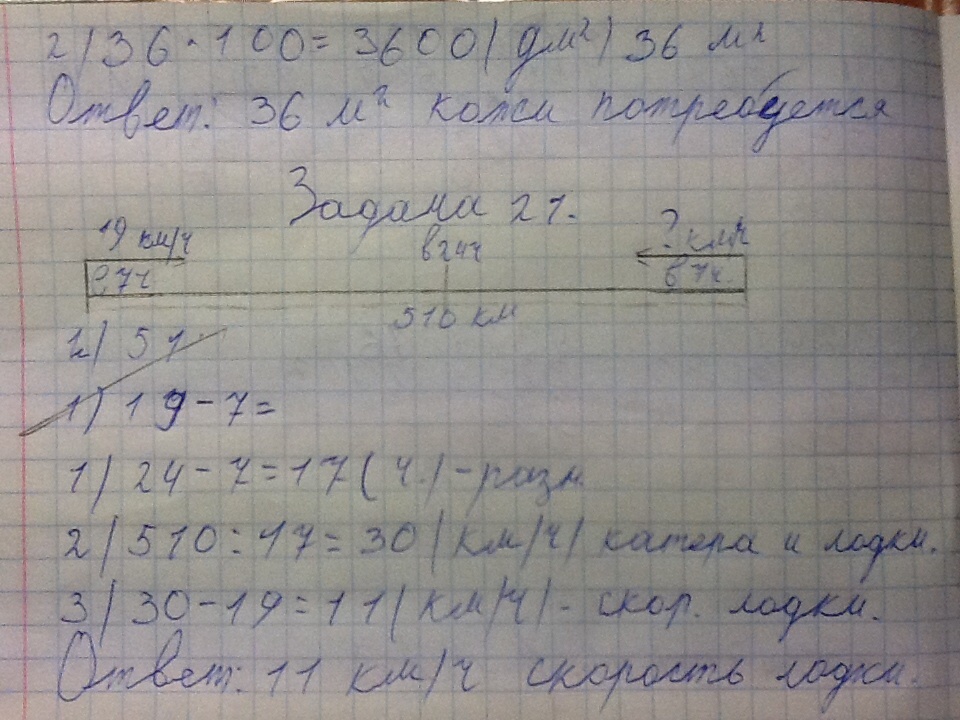 2) 36 · 100 = 3600 (дм²) 36 м²
Ответ: 36 м² кожи потребуется
Задача 21.
19 км/ч в 24ч ? км/ч
в 7ч в 7ч.
510 км
2) 51
1) 19 - 7 =
1) 24 - 7 = 17 (ч.) - разн.
2) 510 : 17 = 30 (км/ч) катера и лодки.
3) 30 - 19 = 11 (км/ч) - скор. лодки.
Ответ: 11 км/ч скорость лодки.